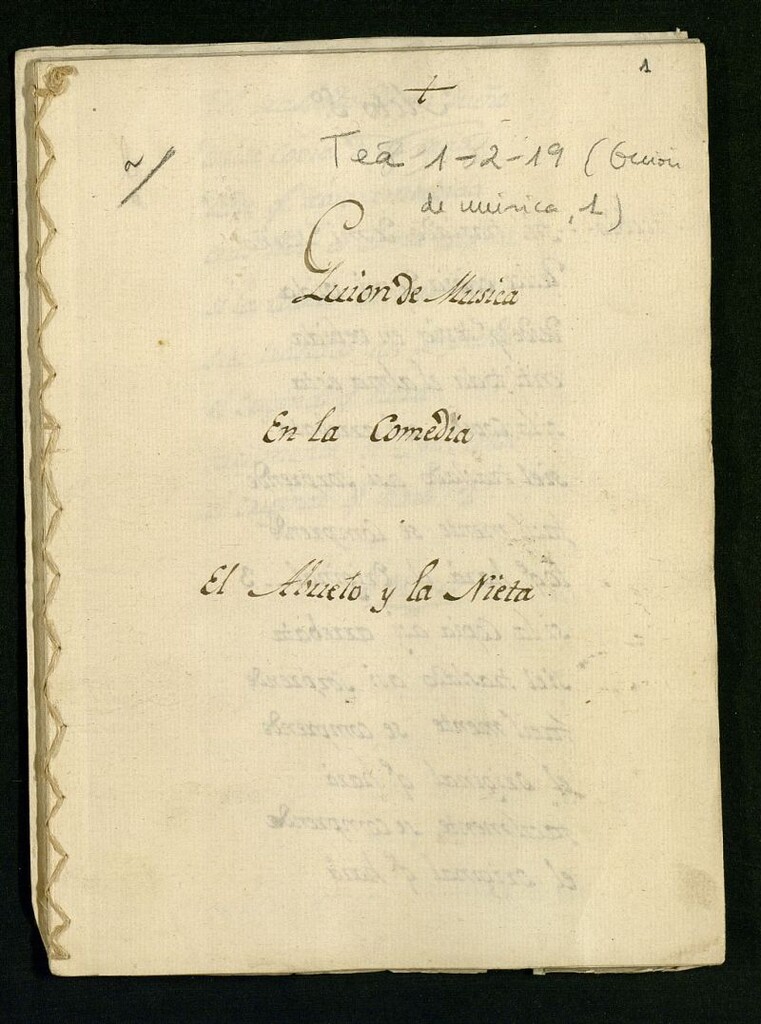 1
+
Tea 1-2-19 (Guion
de musica, 1)
Guion de Musica
En la Comedia
El Abuelo y la Nieta